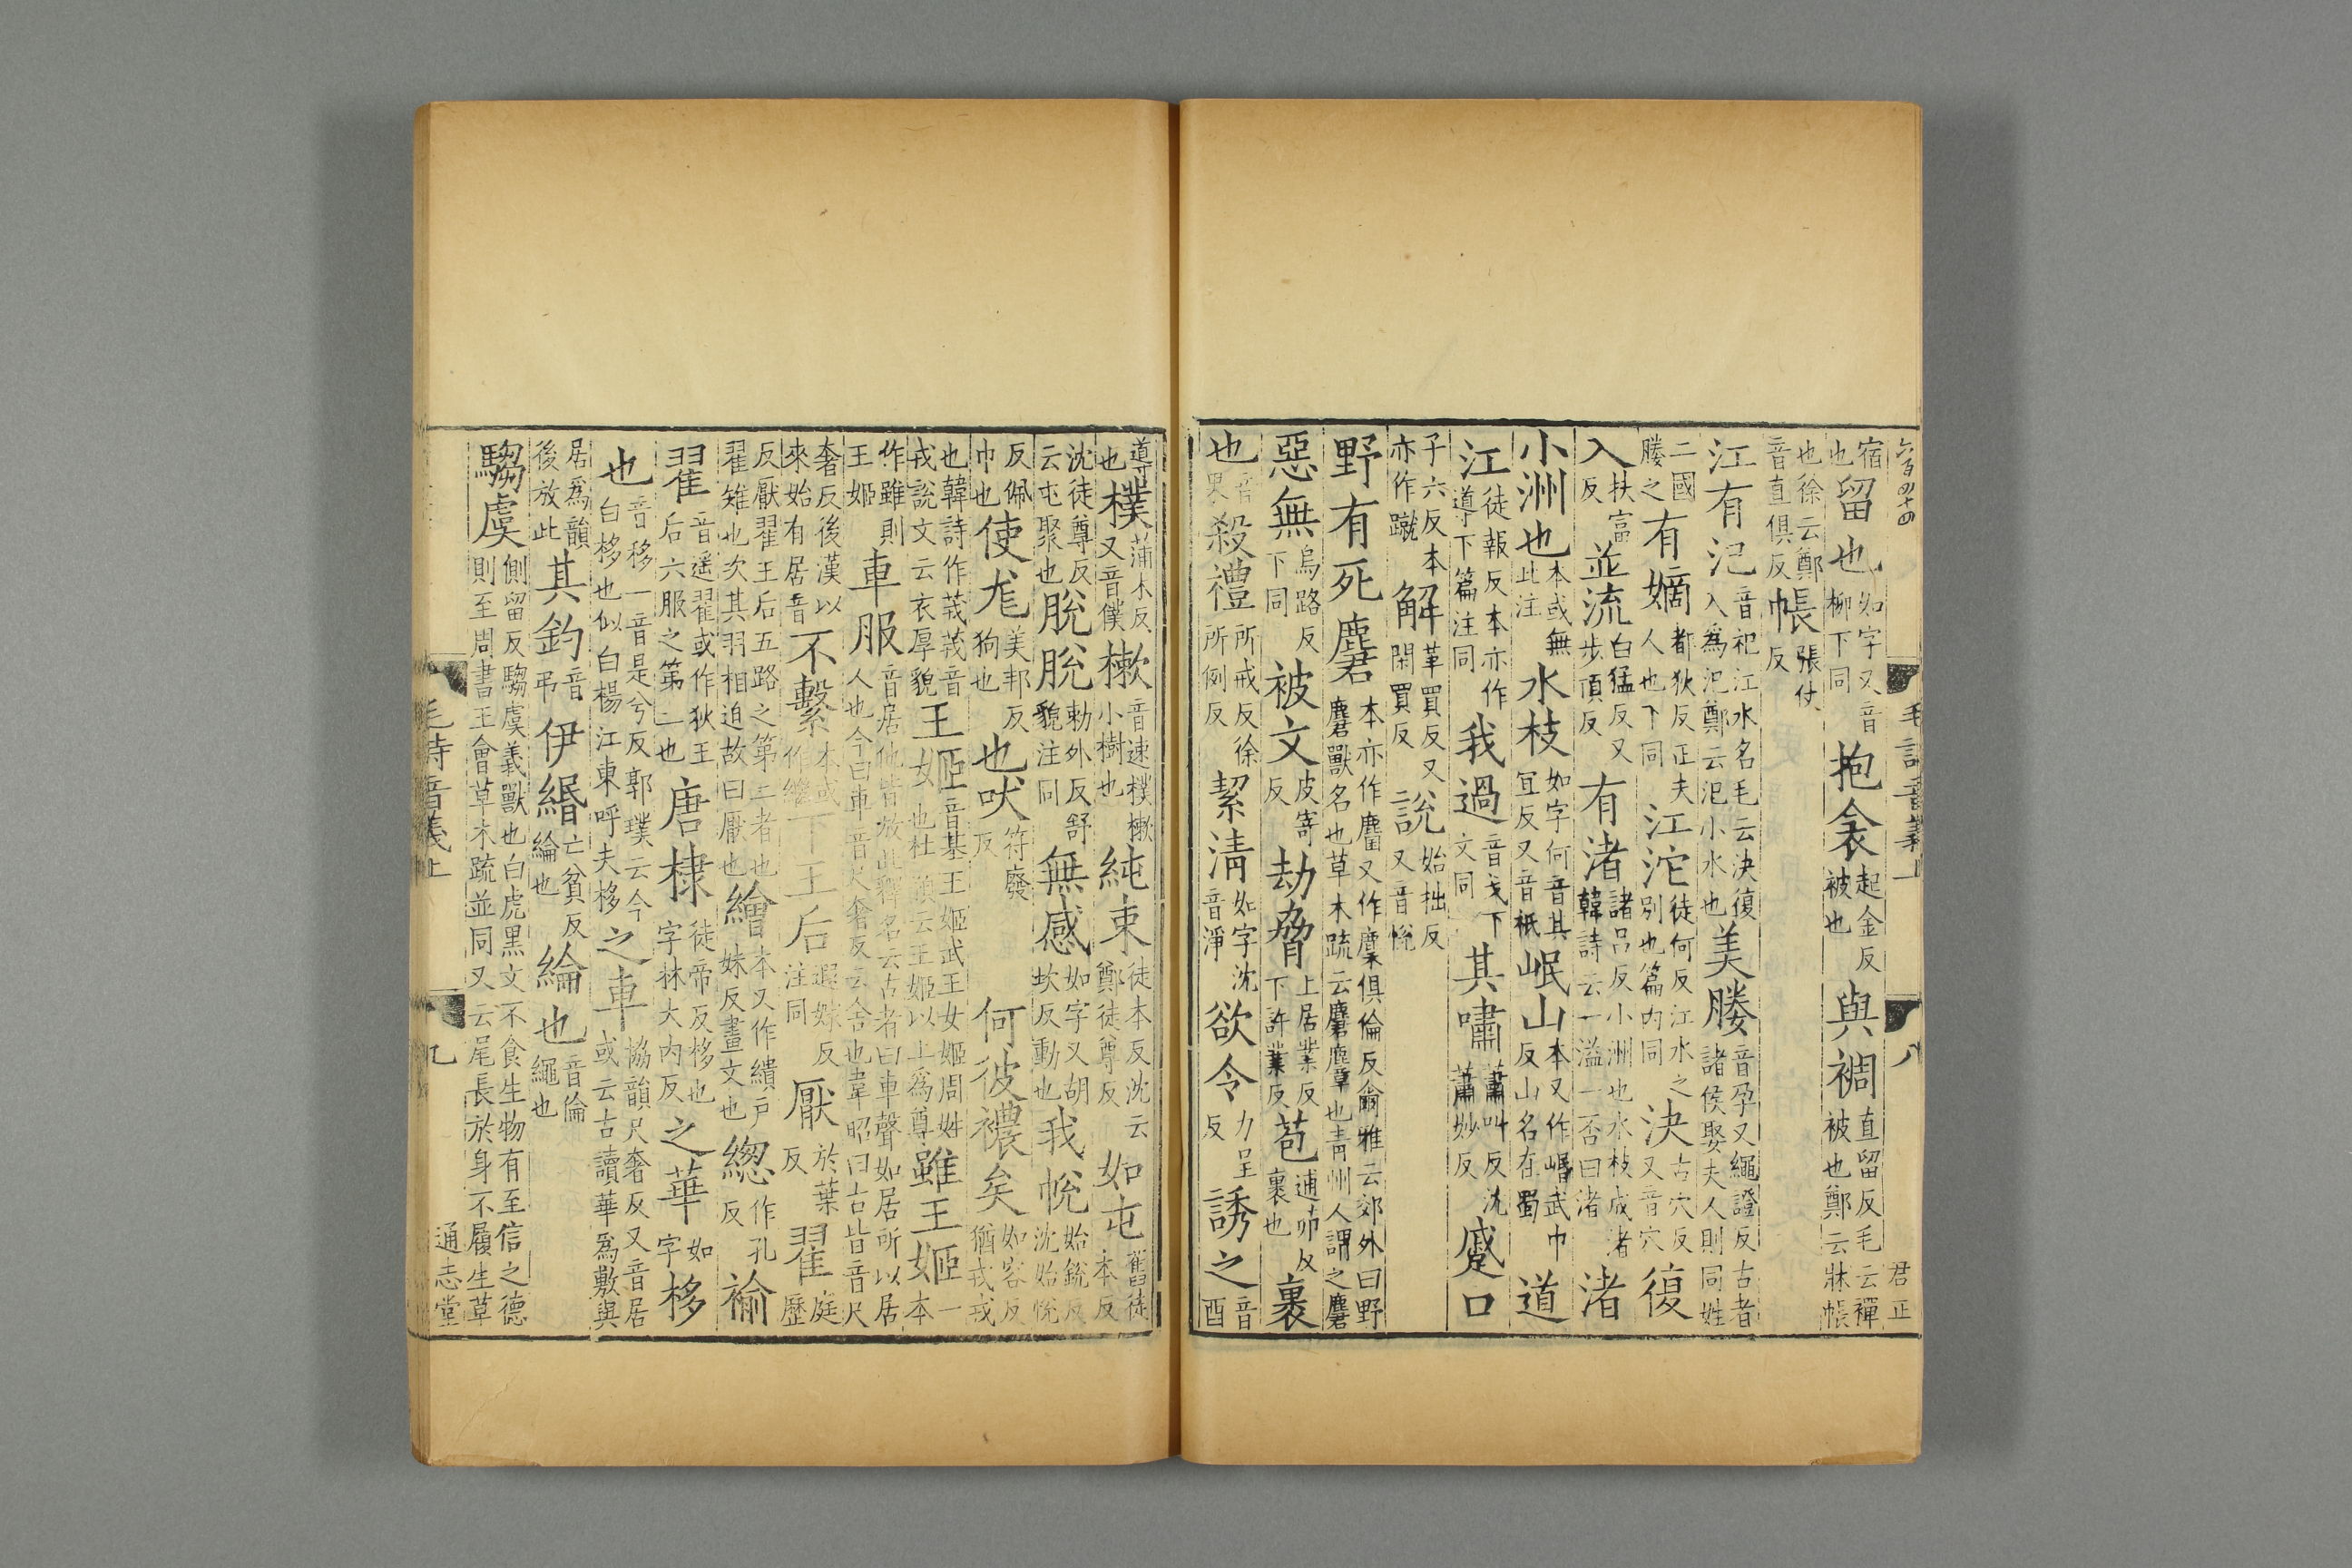 六百四十四 毛詩音義上 八 君正
宿也留也如字又音柳下同抱衾起金反被也與裯直留反被也鄭云牀帳
也徐云鄭音直俱反帳張仗反
江有汜音祀江水名毛云決復入爲汜鄭云汜小水也美媵音孕又繩證反古者諸侯娶夫人則同姓
二國媵之有嫡都狄反正夫人也下同江沱徒何反江水之別也篇內同決古穴反又音穴復
入扶富反並流白猛反又步頂反有渚諸呂反小洲也水枝成渚韓詩云一溢一否曰渚渚
小洲也本或無此注水枝如字何音其宜反又音祇岷山本又作㟭武巾反山名在蜀道
江徒報反本亦作導下篇注同我過音戈下文同其嘯蕭叫反沈蕭妙反蹙口
子六反本亦作蹴解革買反又閑買反說始拙反又音悅
野有死麕本亦作麏又作麇俱倫反爾雅云郊外曰野麕獸名也草木疏云麕麞也青州人謂之麕
惡無烏路反下同被文皮寄反劫脅上居業反下許業反苞逋茆反裹也裹
也音果殺禮所戒反徐所例反絜清如字沈音淨欲令力呈反誘之音酉
導也樸蒲木反又音僕樕音速樸樕小樹也純束徒本反沈云鄭徒尊反如屯舊徒本反
沈徒尊反云屯聚也脫脫勑外反舒貌注同無感如字又胡坎反動也我帨始銳反沈始悅
反佩巾也使尨美邦反狗也也吠符廢反何彼襛矣如容反猶戎戎
也韓詩作茙茙音戎說文云衣厚貌王姬音基王姬武王女姬周姓也杜預云王姬以上爲尊雖王姬一本
作雖則王姬車服音居他皆放此釋名云古者曰車聲如居所以居人也今曰車音尺奢反云舍也韋昭曰古皆音尺
奢反後漢以來始有居音不繫本或作繼下王后遐嫁反注同厭於葉反翟庭歷
反厭翟王后五路之第二者也翟雉也次其羽相迫故曰厭也繪本又作繢戶妹反畫文也緫作孔反褕
翟音遙翟或作狄王后六服之第二也唐棣徒帝反栘也字林大內反之華如字栘
也音移一音是兮反郭璞云今白栘也似白楊江東呼夫栘之車協韻尺奢反又音居或云古讀華爲敷與
居爲韻後放此其釣音弔伊緡亡貧反綸也綸也音倫繩也
騶虞側留反騶虞義獸也白虎黑文不食生物有至信之德則至周書王會草木疏並同又云尾長於身不履生草
毛詩音義上 八 通志堂